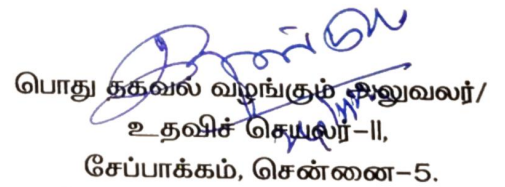 பொது தகவல் வழங்கும் அலுவலர்/
உதவிச் செயலர்-II,
சேப்பாக்கம், சென்னை-5.